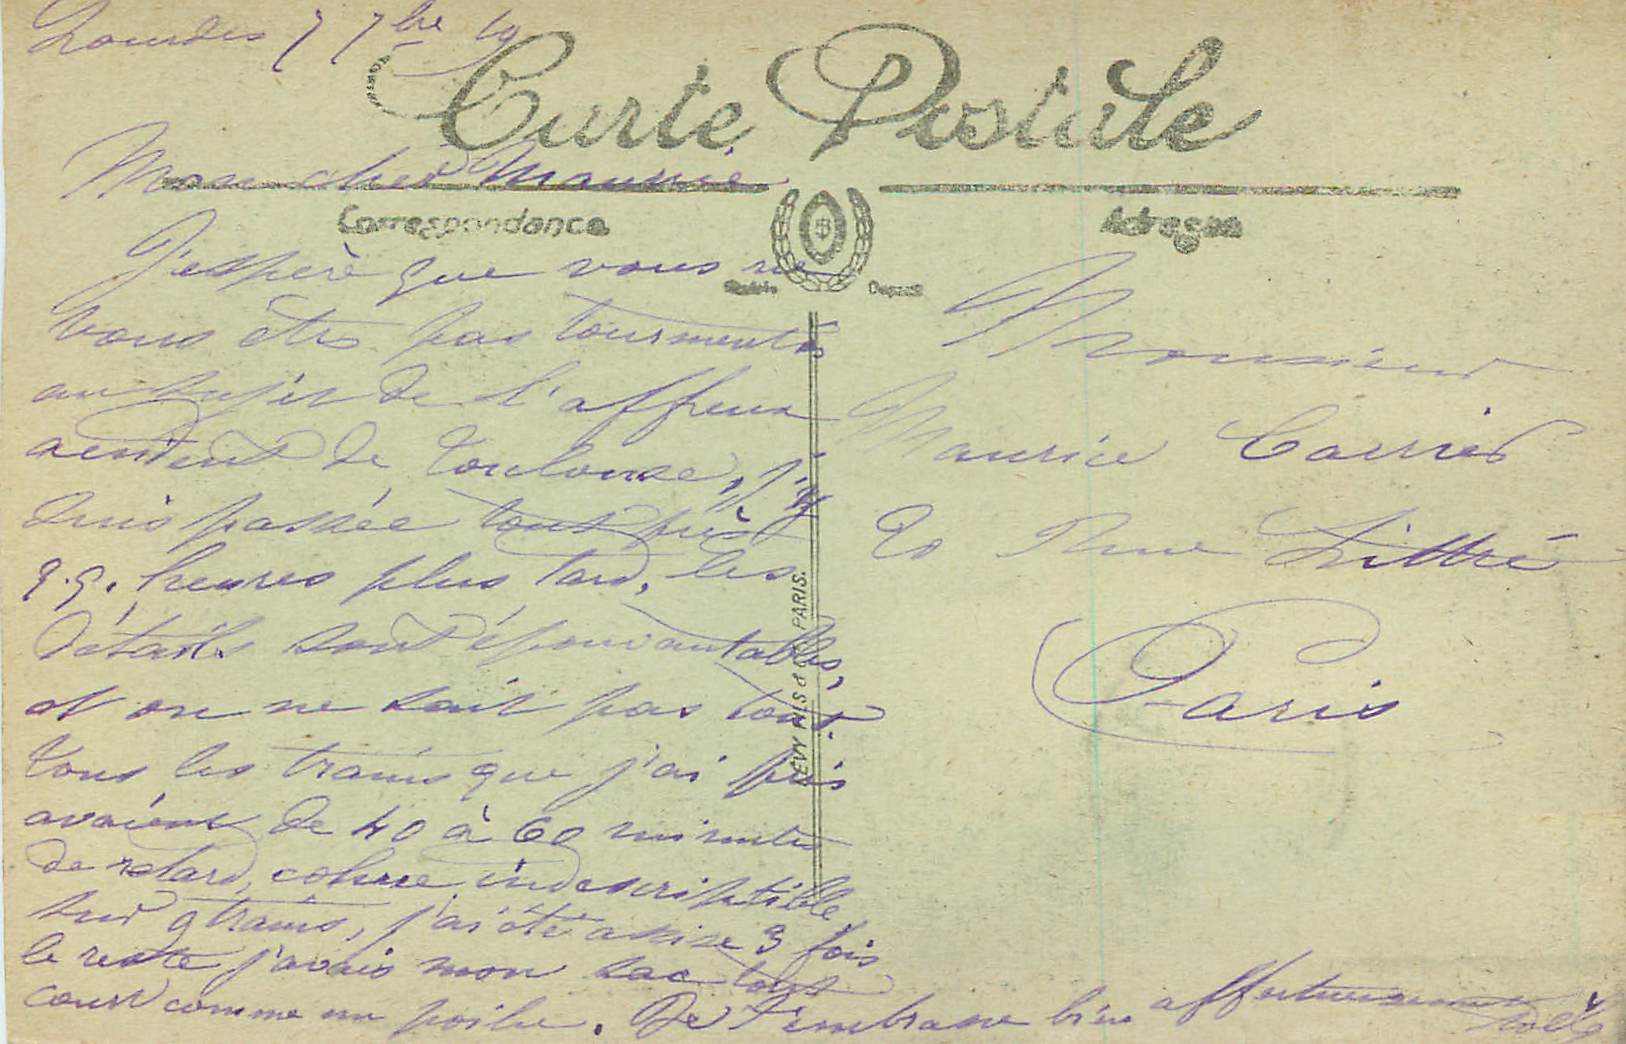 Lourdes 7 7bre 19
Carte Postale
Mon cher Maurice
Correspondance
Adresse
J'espère que vous ne
vous êtes pas tourmentés
au sujet de l'affreux
accident de Toulouse, j'y
suis passée tout près
q.q. heures plus tard, les
détails sont épouvantables,
et on ne sait pas tout.
Tous les trains que j'ai pris
avaient de 40 à 60 minutes
de retard, cohue indescriptible,
sur 9 trains, j'ai été assise 3 fois
le reste j'avais mon sac tout
court comme un poilu. Je t'embrasse bien affectueusement
LÉVY FILS & PARIS.
Monsieur
Maurice Carrier
20 Rue Littré
Paris